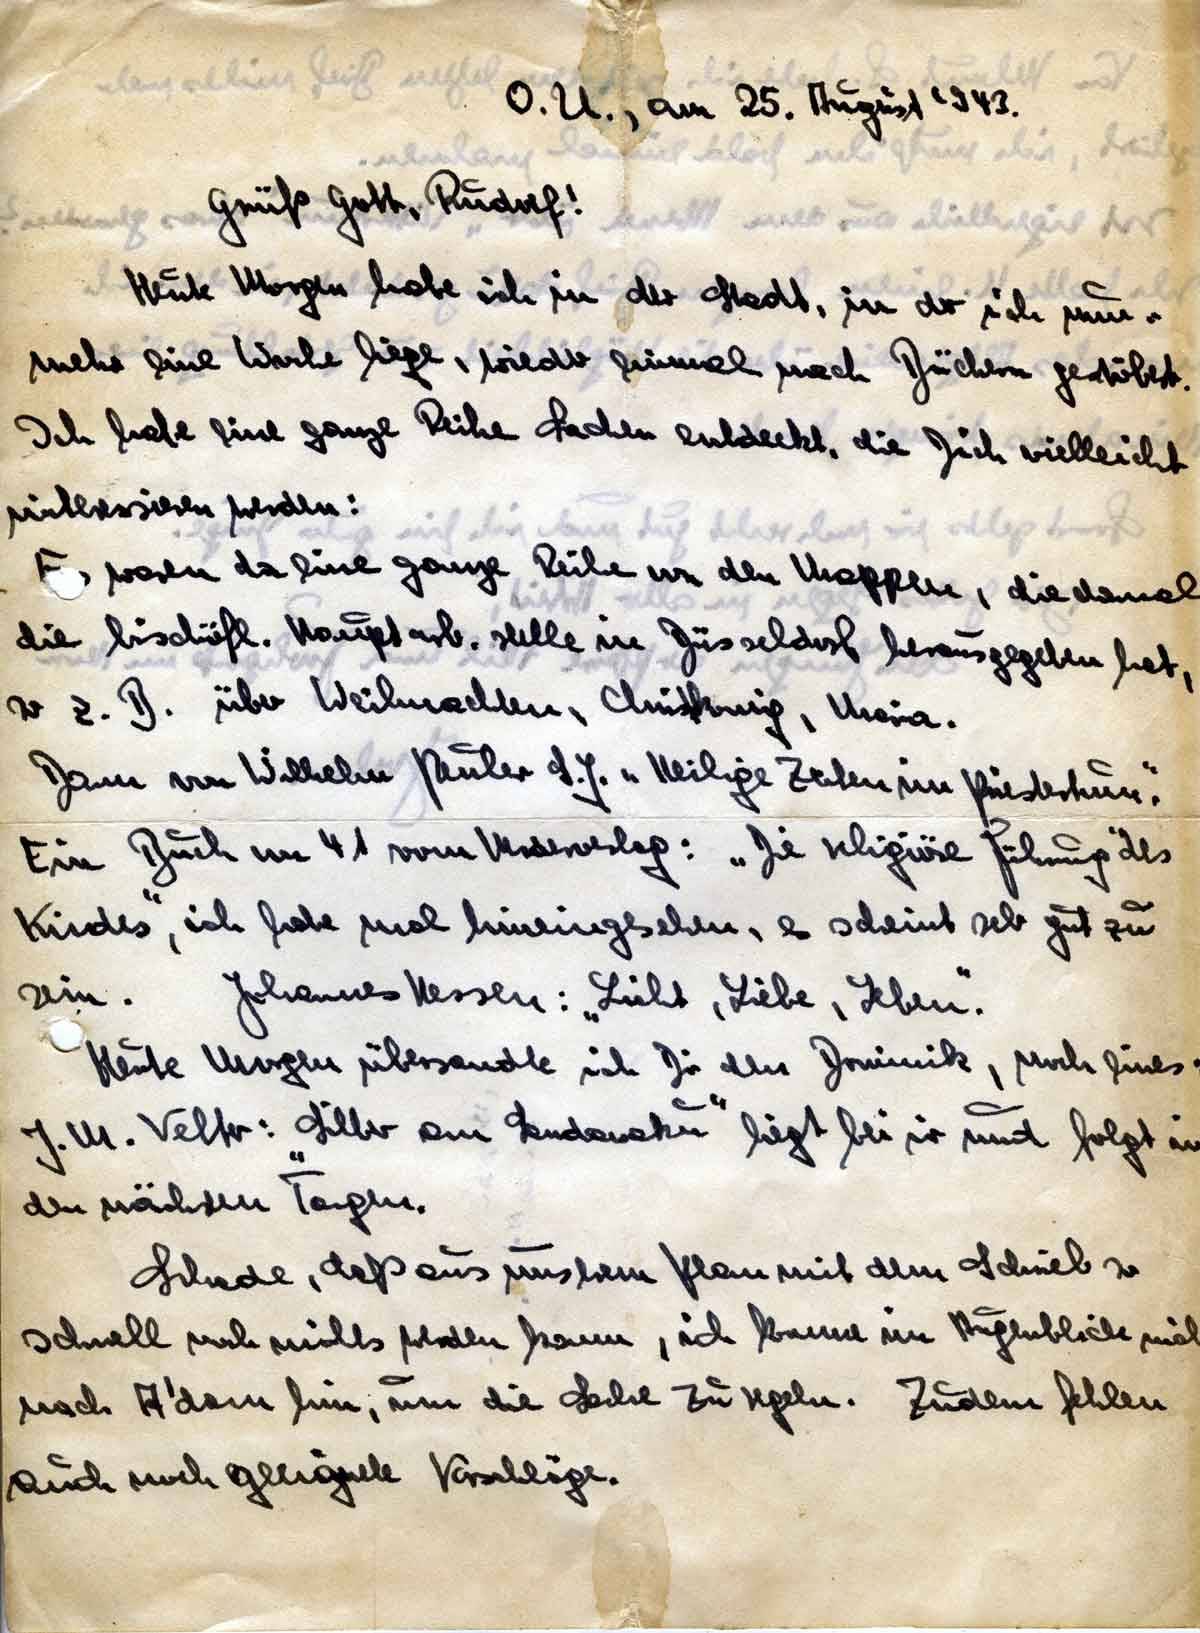 O.U., am 25. August 1943.
Grüß Gott, Rudolf!
Heute Morgen habe ich in der Stadt, in der ich nun-
mehr eine Woche liege, wieder einmal nach Büchern gestöbert.
Ich habe eine ganze Reihe Sachen entdeckt, die Dich vielleicht
interessieren werden:
Es waren da eine ganze Reihe von den Mappen, die damal
die bischöfl. Hauptarb.stelle in Düsseldorf herausgegeben hat,
so z. B. über Weihnachten, Christkönig, Maria.
Dann von Wilhelm Peuler S.J. „Heilige Zeiten im Priestertum".
Ein Buch von 41 vom Matthias: „Die religiöse Führung des
Kindes", ich habe mal hineingesehen, es scheint sehr gut zu
sein. Johannes Hessen: „Licht, Liebe, Leben".
Heute Morgen übersandte ich Dir den Dominik, noch eines:
J. M. Velter: „Silber am Sandavaku" liegt bei mir und folgt in
den nächsten Tagen.
Schade, daß aus unserem Plan mit dem Schrieb so
schnell noch nichts werden kann, ich komme im Augenblick nicht
nach A'dam hin, um die Sache zu regeln. Zudem fehlen
auch noch geeignete Vorschläge.